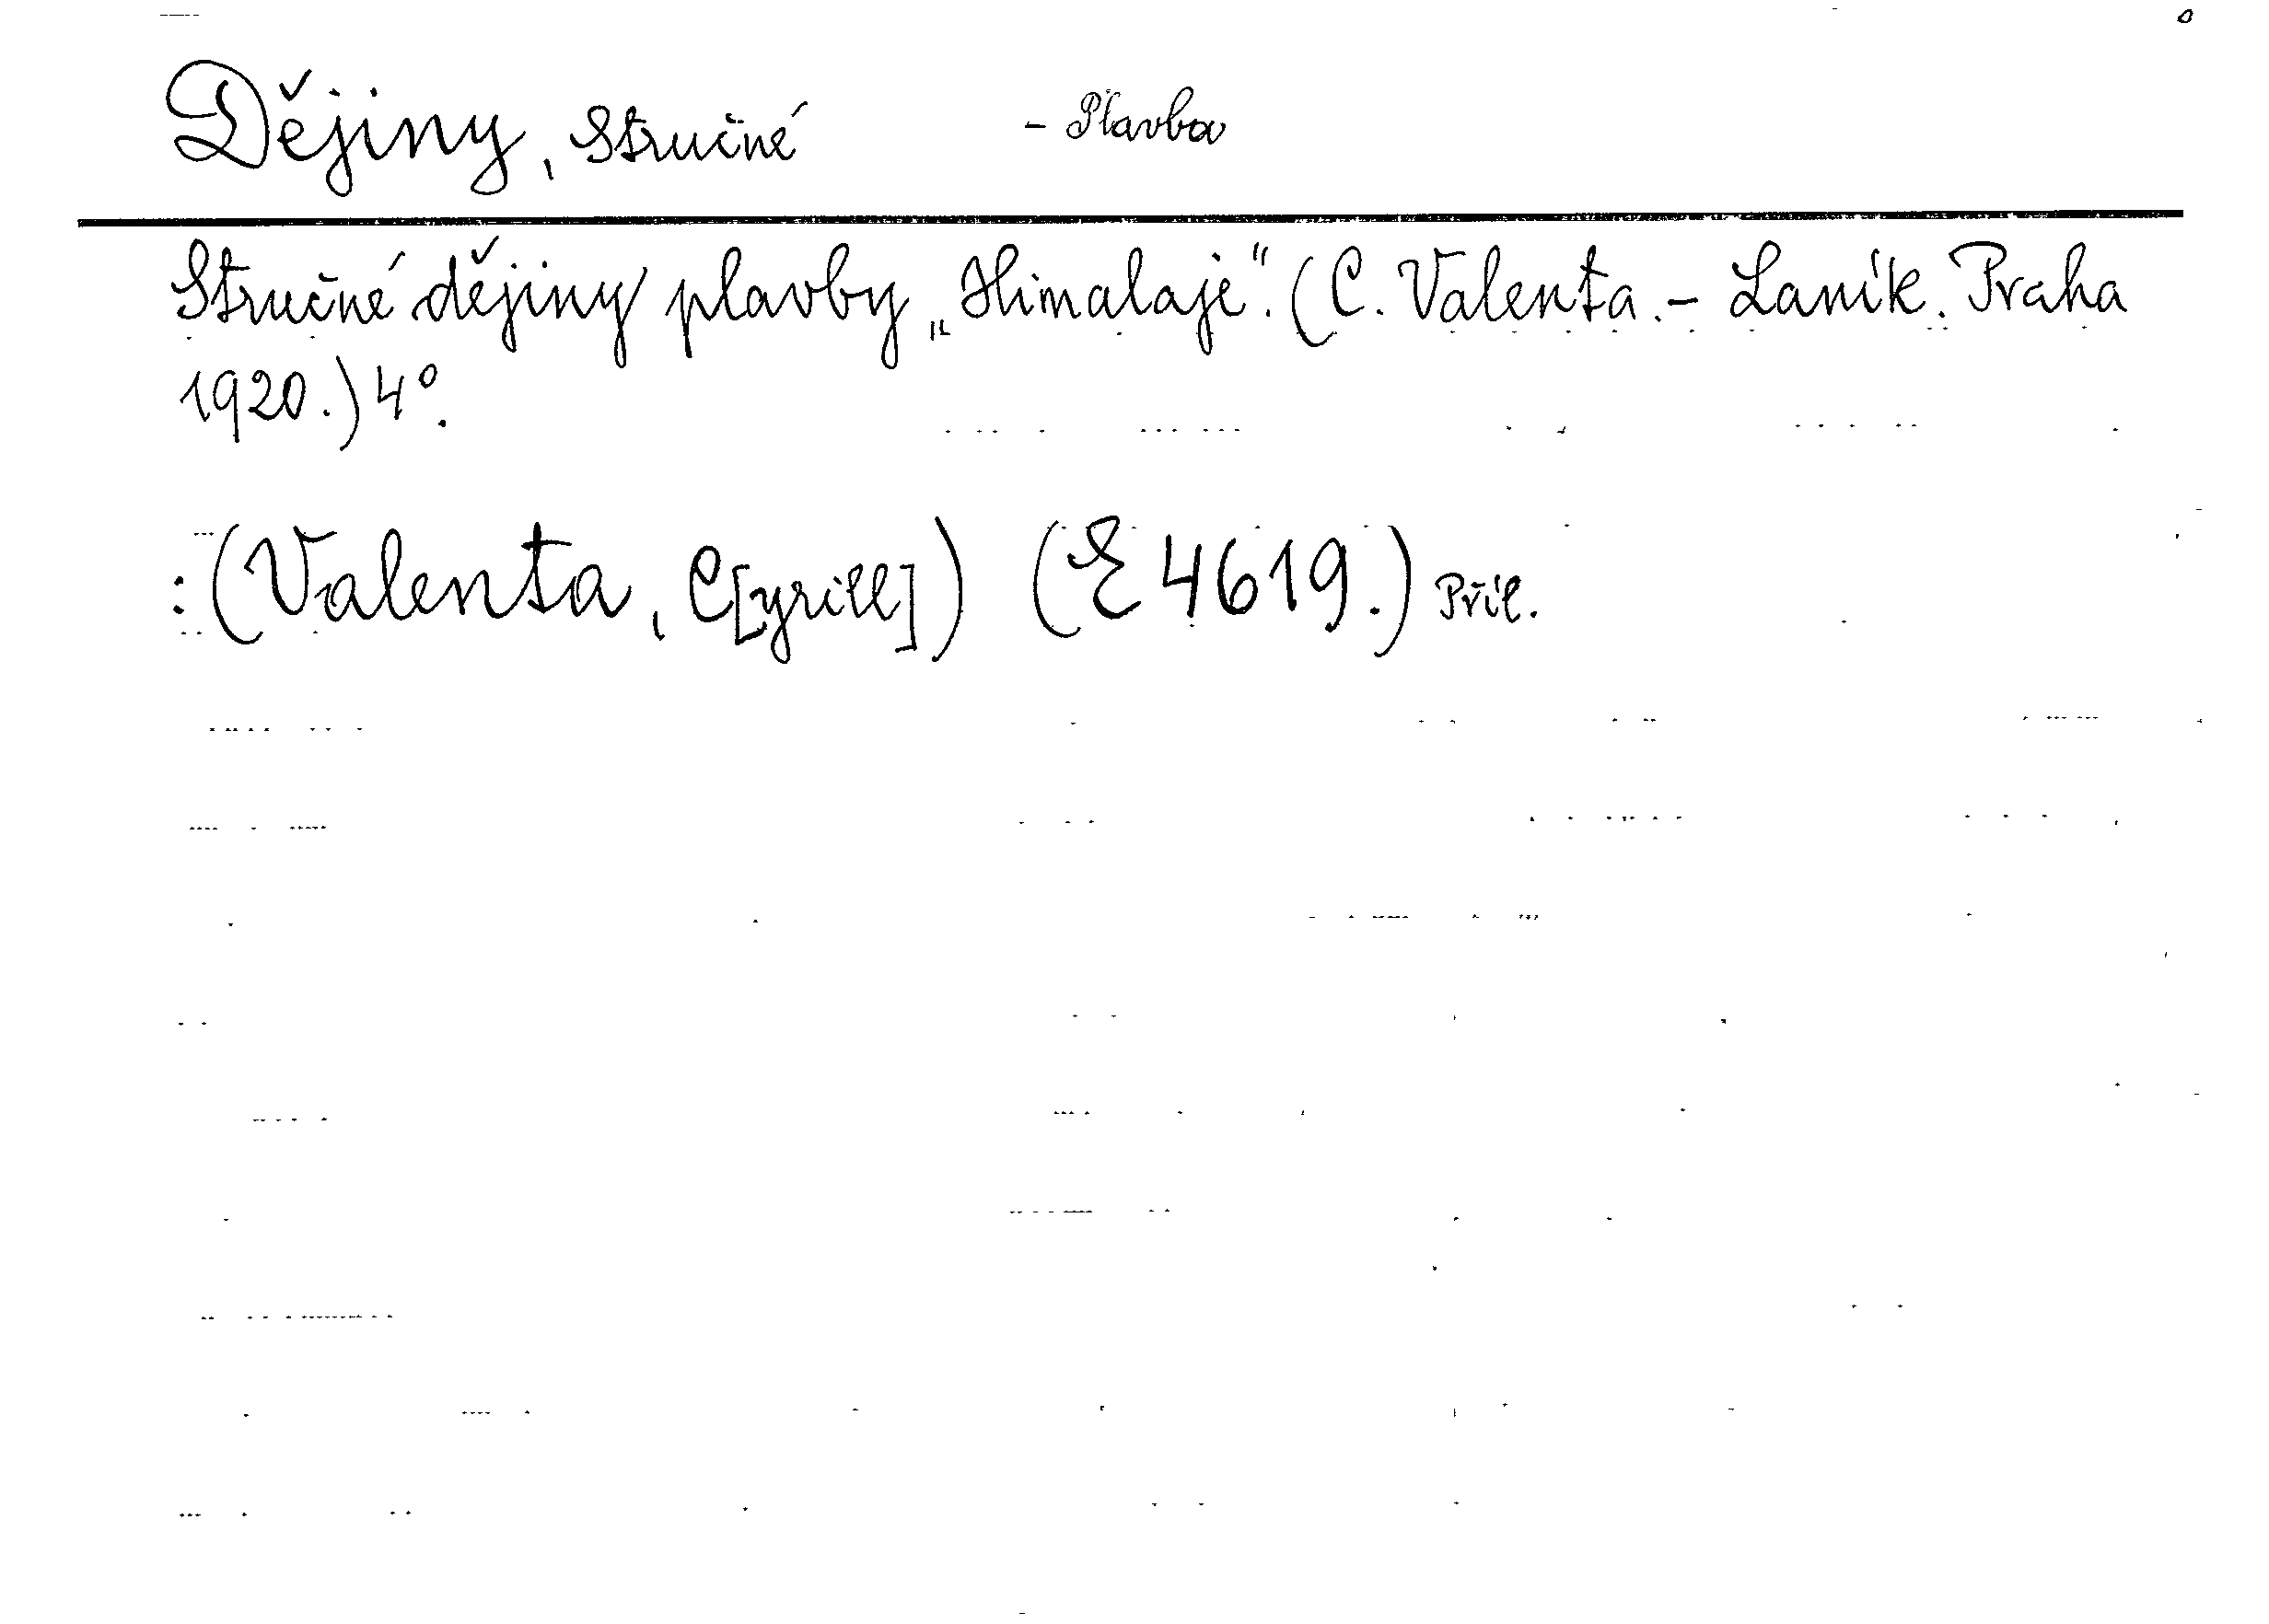 Dějiny, stručné - Plavba
Stručné dějiny plavby „Himalaje". (C. Valenta. - Laník. Praha
1920.) 4°.
: (Valenta, C[yrill]) (E 4619.) Příl.